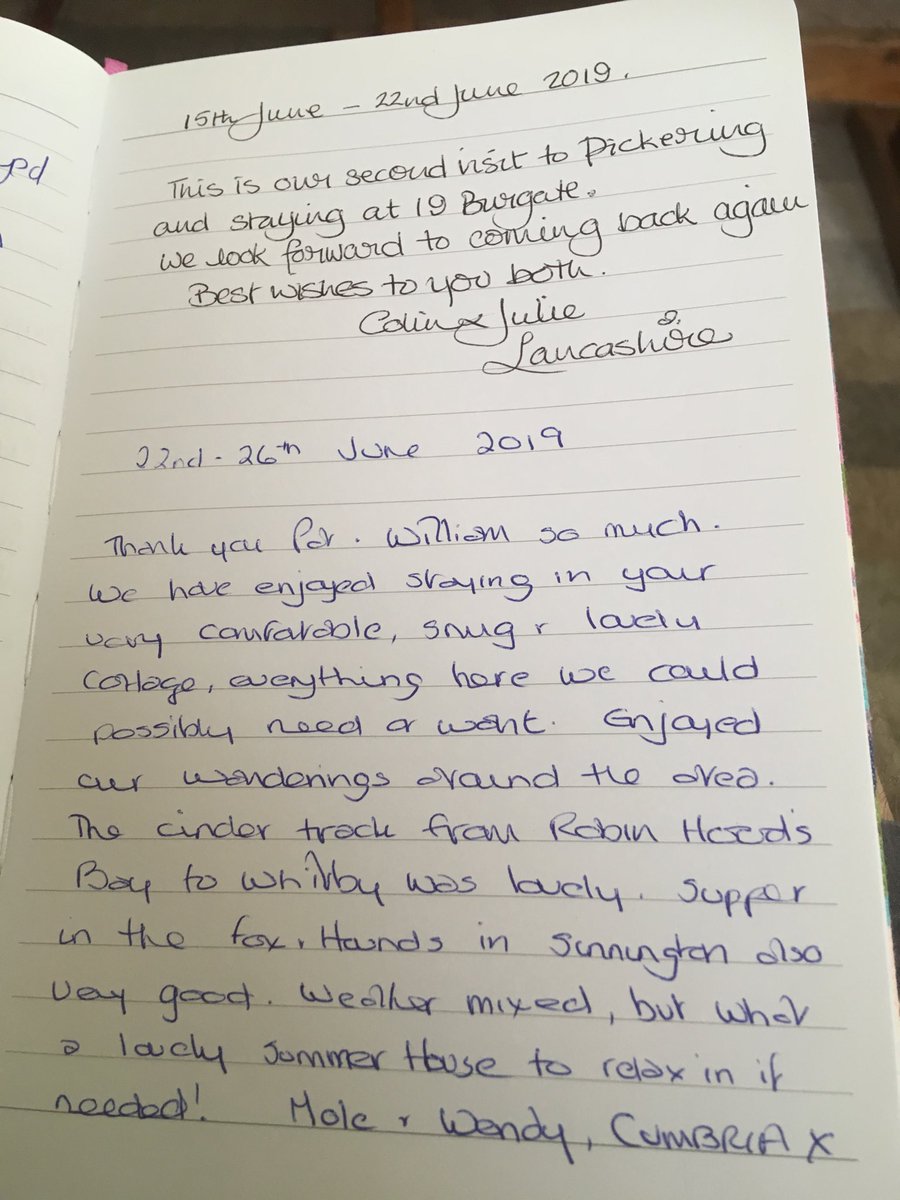 ed
15th June - 22nd June 2019.
This is our second visit to Pickering
and staying at 19 Burgate.
we look forward to coming back again
Best wishes to you both.
Colin & Julie
Lancashire
22nd - 26th June 2019
Thank you Pat. William so much.
We have enjoyed staying in your
very comfortable, snug & lovely
cottage, everything here we could
possibly need or want. Enjoyed
our wanderings around the area.
The cinder track from Robin Hood's
Bay to Whitby was lovely. Supper
in the fox & Hounds in Sinnington also
very good. Weather mixed, but what
a lovely summer House to relax in if
needed! & Wendy, CUMBRIA X